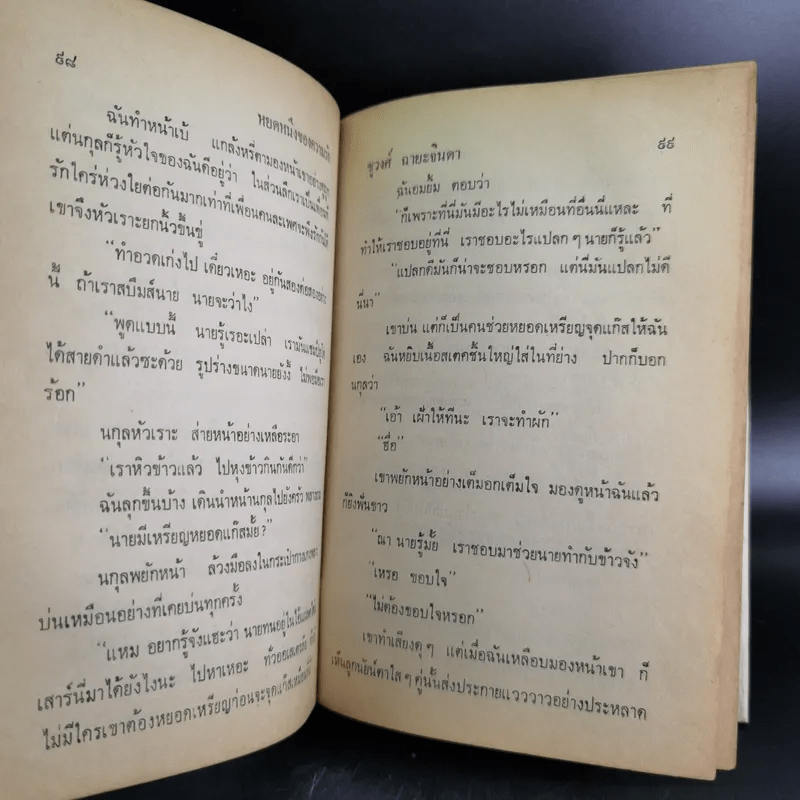 ๙๘
หยดหนึ่งของความรัก
ฉันทำหน้าเบ้ แกล้งหรี่ตามองหน้าเขาอย่าง
แต่นกุลก็รู้หัวใจของฉันดีอยู่ว่า ในส่วนลึกเราเป็นเพื่อนที่
รักใคร่ห่วงใยต่อกันมากเท่าที่เพื่อนคนละเพศจะพึงรักกันได้
เขาจึงหัวเราะยกนิ้วขึ้นขู่
“ทำอวดเก่งไป เดี๋ยวเหอะ อยู่กันสองต่อสองอย่าง
นี้ ถ้าเราสบีมส์นาย นายจะว่าไง”
“พูดแบบนี้ นายรู้เรอะเปล่า เรามัน
ได้สายดำแล้วซะด้วย รูปร่างขนาดนายยังงี้ ไม่พอมือเรา
ร้อก”
นกุลหัวเราะ ส่ายหน้าอย่างเหลือระอา
“เราหิวข้าวแล้ว ไปหุงข้าวกินกันดีกว่า”
ฉันลุกขึ้นบ้าง เดินนำหน้านกุลไปยังครัว
“นายมีเหรียญหยอดแก๊สมั้ย?”
นกุลพยักหน้า ล้วงมือลงในกระเป๋ากางเกง
บ่นเหมือนอย่างที่เคยบ่นทุกครั้ง
“แหม อยากรู้จังแฮะว่า นายทนอยู่ใน
เสาร์นี่มาได้ยังไงนะ ไปหาเหอะ ทั่วออสเตรเลีย
ไม่มีใครเขาต้องหยอดเหรียญก่อนจะจุดแก๊ส
๙๙
ชูวงศ์ ฉายะจินดา
ฉันอมยิ้ม ตอบว่า
“ก็เพราะที่นี่มันมีอะไรไม่เหมือนที่อื่นนี่แหละ ที่
ทำให้เราชอบอยู่ที่นี่ เราชอบอะไรแปลกๆ นายก็รู้แล้ว”
“แปลกดีมันก็น่าจะชอบหรอก แต่นี่มันแปลกไม่ดี
นี่นา”
เขาบ่น แต่ก็เป็นคนช่วยหยอดเหรียญจุดแก๊สให้ฉัน
เอง ฉันหยิบเนื้อสเตคชิ้นใหญ่ใส่ในที่ย่าง ปากก็บอก
นกุลว่า
“เอ้า เฝ้าให้ทีนะ เราจะทำผัก”
“ฮื่อ”
เขาพยักหน้าอย่างเต็มอกเต็มใจ มองดูหน้าฉันแล้ว
ก็ยิงฟันขาว
“ณา นายรู้มั้ย เราชอบมาช่วยนายทำกับข้าวจัง”
“เหรอ ขอบใจ”
“ไม่ต้องขอบใจหรอก”
เขาทำเสียงดุๆ แต่เมื่อฉันเหลือบมองหน้าเขา ก็
เห็นลูกนัยน์ตาใสๆ คู่นั้นส่งประกายแวววาวอย่างประหลาด